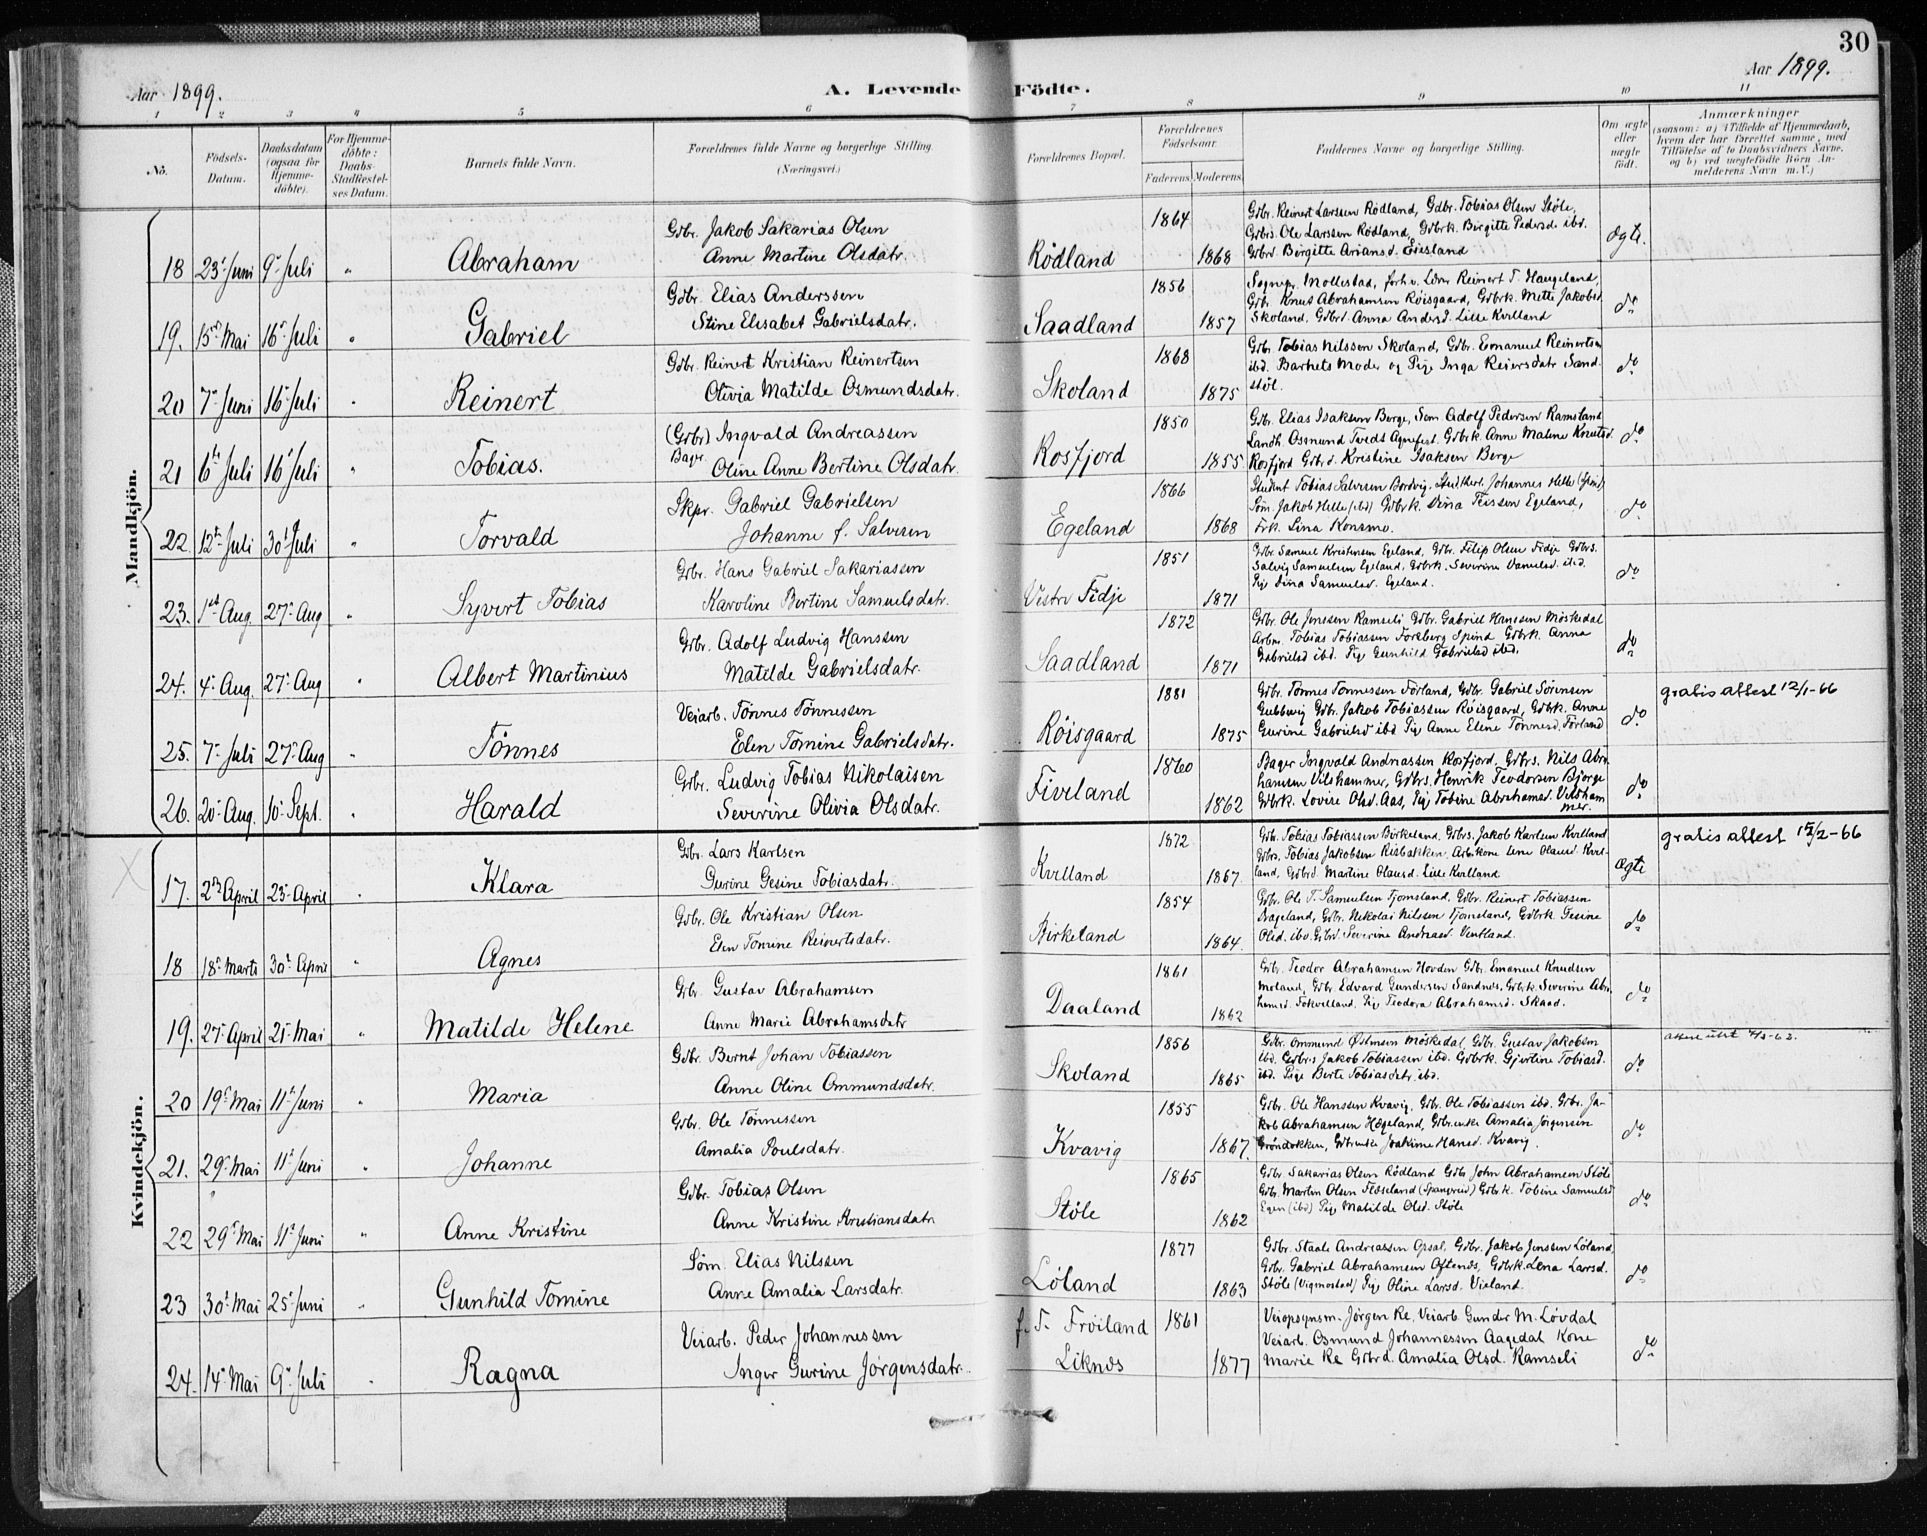 30
Aar 1899.
A. Levende Födte.
Aar 1899.
1 2 3 4 5 6 7 8 9 10 11
No.
Födsels-Datum.
Daabsdatum (ogsaa for Hjemme-döbte).
For Hjemme-döbte: Daabs-Stadfæstel-ses Datum.
Barnets fulde Navn.
Forældrenes fulde Navne og borgerlige Stilling.
(Næringsvei.)
Forældrenes Bopæl.
Forældrenes Födselsaar.
Faderens. Moderens.
Faddernes Navne og borgerlige Stilling.
Om ægte eller uægte födt.
Anmærkninger
(saasom: a) i Tilfælde af Hjemmedaab, hvem der har forrettet samme, med Tilföielse af to Daabsvidners Navne, og b) ved uægtefödte Börn An-melderens Navn m.V.)
Mandkjön.
18 23 Juni 9 Juli " Abraham
Gdbr. Jakob Sakarias Olsen
Anne Martine Olsdatr.
Rødland 1864 1868
Gdbr. Reinert Larssen Rødland, Gdbr. Tobias Olsen Støle,
Gdbrs. Ole Larssen Rødland, Gdbrk. Birgitte Pedersd. ibd.
Gdbrd Birgitte Ariansd. Eiesland
ægte.
19. 15 Mai 16 Juli " Gabriel
Gdbr. Elias Anderssen
Stine Elisabet Gabrielsdatr.
Saadland 1856 1857
Sogнpr. Mollestad, forh.v. Lærer Reinert T. Haugeland,
Gdbr. Knut Abrahamsen Røisgaard, Gdbrk. Mette Jakobsd.
Skoland, Gdbrd. Anna Andersd. Lille Kvilland
do
20 7 Juni 16 Juli " Reinert
Gdbr. Reinert Kristian Reinertsen
Olivia Matilde Osmundsdatr.
Skoland 1868 1875
Gdbr Tobias Nilssen Skoland, Gdbr. Emanuel Reinertsen
ibd. Barnets Moder og Pige Inga Reiersdatr Sand-
støl.
do
21 6 Juli 16 Juli " Tobias.
(Gdbr) Ingvald Andreassen
Bager.
Oline Anne Bertine Olsdatr.
Rosfjord 1850 1855
Gdbr. Elias Isaksen Berge, Søm Adolf Pedersen Ramsland
Landh. Osmund Tvedt Agnefest. Gdbrk. Anne Malene Knutsd.
Rosfjord Gdbrd. Kristine Isaksen Berge
do
22 12 Juli 30 Juli " Torvald
Skpr. Gabriel Gabrielsen
Johanne f. Salvesen
Egeland 1866 1868
Student Tobias Salvesen Johannes Helle (Spind)
Søm. Jakob Helle (ibd) Gdbrk. Dina Egeland,
Lina Konsmo.
do
23. 1st Aug. 27 Aug " Syvert Tobias
Gdbr. Hans Gabriel Sakariassen
Karoline Bertine Samuelsdatr.
Vestre Fidje 1851 1871
Gdbr Samuel Kristensen Egeland, Gdbr. Filip Olsen Fidje Gdbrs.
Salvig Samuelsen Egeland, Gdbrk. Severine ibd.
Pig Dina Samuelsd. Egeland.
do
24. 4 Aug. 27 Aug " Albert Martinius
Gdbr. Adolf Ludvig Hanssen
Matilde Gabrielsdatr.
Saadland 1872 1871
Gdbr. Ole Jenssen Ramseli Gdbr. Gabriel Hanssen Møskedal
Arbm. Tobias Tobiassen Forsberg Spind Gdbrk. Anna
Gabrielsd ibd. Pig Gunhild Gabrielsd ibd.
do
25. 7 Juli 27 Aug " Tønnes
Veiarb. Tønnes Tønnessen
Elen Tomine Gabrielsdatr.
Røisgaard 1881 1875
Gdbr. Tønnes Tønnessen Førland, Gdbr. Gabriel Sørensen
Gdbr. Jakob Tobiassen Røisgaard, Gdbrk. Anne
Gurine Gabrielsd ibd Pig Anne Elene Tønnesd. Førland
do
gratis attest 12/1-66
26. 20 Aug. 10 Sept. " Harald
Gdbr. Ludvig Tobias Nikolaisen
Severine Olivia Olsdatr.
Fiveland 1860 1862
Bager Ingvald Andreassen Rosfjord, Gdbrs. Nils Abra-
hamsen Vilshammer, Gdbrs. Henrik Teodorsen Bjorge
Gdbrk. Lovise Olsd. Aas, Pig Tobine Abrahamsd. Vilsham
mer.
do
Kvindekjön.
17. 2 April 23 April " Klara
Gdbr. Lars Karlsen
Gurine Gesine Tobiasdatr.
Kvilland 1872 1867.
Gdbr. Tobias Tobiassen Birkeland, Gdbrs. Jakob Karlsen Kvilland
Gdbrs. Tobias Jakobsen Risbakken, Arbkone Lene Olausd. Kvil-
land, Gdbrd. Martine Olausd. Lille Kvilland
ægte
gratis attest 15/2-66
18 18 Marts 30 April " Agnes
Gdbr. Ole Kristian Olsen
Elen Tomine Reinertsdatr.
Birkeland 1854 1864.
Gdbr. Ole T. Samuelsen Fjomsland, Gdbr. Reinert Tobiassen
Aageland, Gdbr. Nikolai Nilssen Fjomsland, Gdbrk. Gesine
Olsd. ibd. Gdbrd Severine Andreasd.
do
19. 27 April 21 Mai " Matilde Helene
Gdbr. Gustav Abrahamsen
Anne Marie Abrahamsdatr
Daaland 1861 1862
Gdbr. Teodor Abrahamsen Hovden Gdbr. Emanuel Knudsen
Moland, Gdbr Edvard Gundersen Sandnes, Gdbrk. Severine Abra-
hamsd. Pig Teodora Abrahamsd. Skaad.
do
20 19 Mai 11 Juni " Maria
Gdbr. Bernt Johan Tobiassen
Anne Oline Ommundsdatr.
Skoland 1856 1865
Gdbr. Ommund Møskedal, Gdbr. Gustav Jakobsen
ibd. Gdbrs Jakob Tobiassen ibd. Gdbrk. Gjertine Tobiasd.
ibd. Pige Berte Tobiasdatr. ibd.
do
21. 29 Mai 11 Juni " Johanne
Gdbr. Ole Tønnessen
Amalia Poulsdatr.
Kvavig 1855 1867.
Gdbr. Ole Hanssen Kvavig, Gdbr. Ole Tobiassen ibd. Gdbr. Ja-
kob Abrahamsen Høgeland, Gdbr.enke Amalia Jørgensen
Grøndokken, Gdbrenke Joakime Hansd. Kvavig.
do
22 29 Mai 11 Juni " Anne Kristine
Gdbr. Tobias Olsen
Anne Kristine Kristiansdatr
Støle 1865 1862
Gdbr Sakarias Olsen Rødland Gdbr John Abrahamsen Støle
Gdbr. Martin Olsen Fløseland (Spangreid) Gdbrk. Tobine Samuelsd
Egen (ibd) Pig Matilde Olsd. Støle
do
23 30 Mai 25 Juni " Gunhild Tomine
Søm. Elias Nilssen
Anne Amalia Larsdatr.
Løland 1877 1863
Gdbr. Staale Andreassen Opsal, Gdbr. Jakob Jenssen Løland,
Gdbr. Gabriel Abrahamsen Oftenes, Gdbrk. Lena Larsd.
Støle (Vigmostad) Pig Oline Larsd. Vieland.
do
24. 14 Mai 9 Juli " Ragna
Veiarb. Peder Johannessen
Inger Gurine Jørgensdatr.
f. T. Frøiland
Liknes 1861 1877
Veiopsynsm. Jørgen Re, Veiarb. Gunder M. Løvdal
Veiarb. Osmund Johannessen Aagedal Kone
Marie Re Gdbrd. Amalia Olsd. Ramseli
do